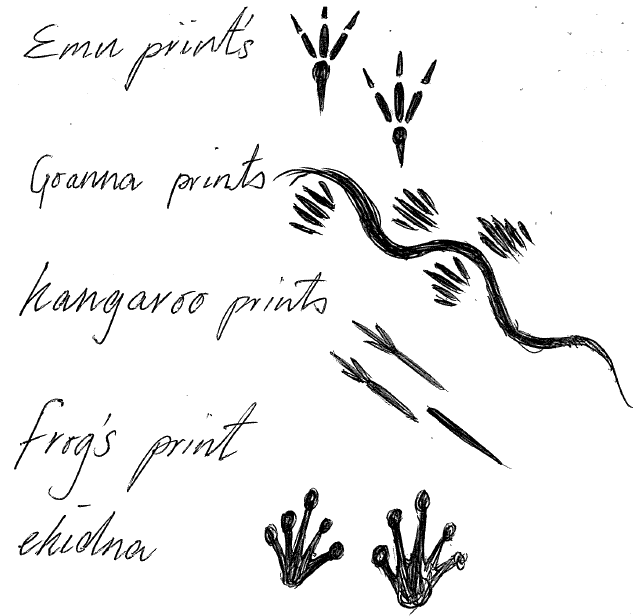 Emu print's
Goanna prints
kangaroo prints
frog's print
ekidna